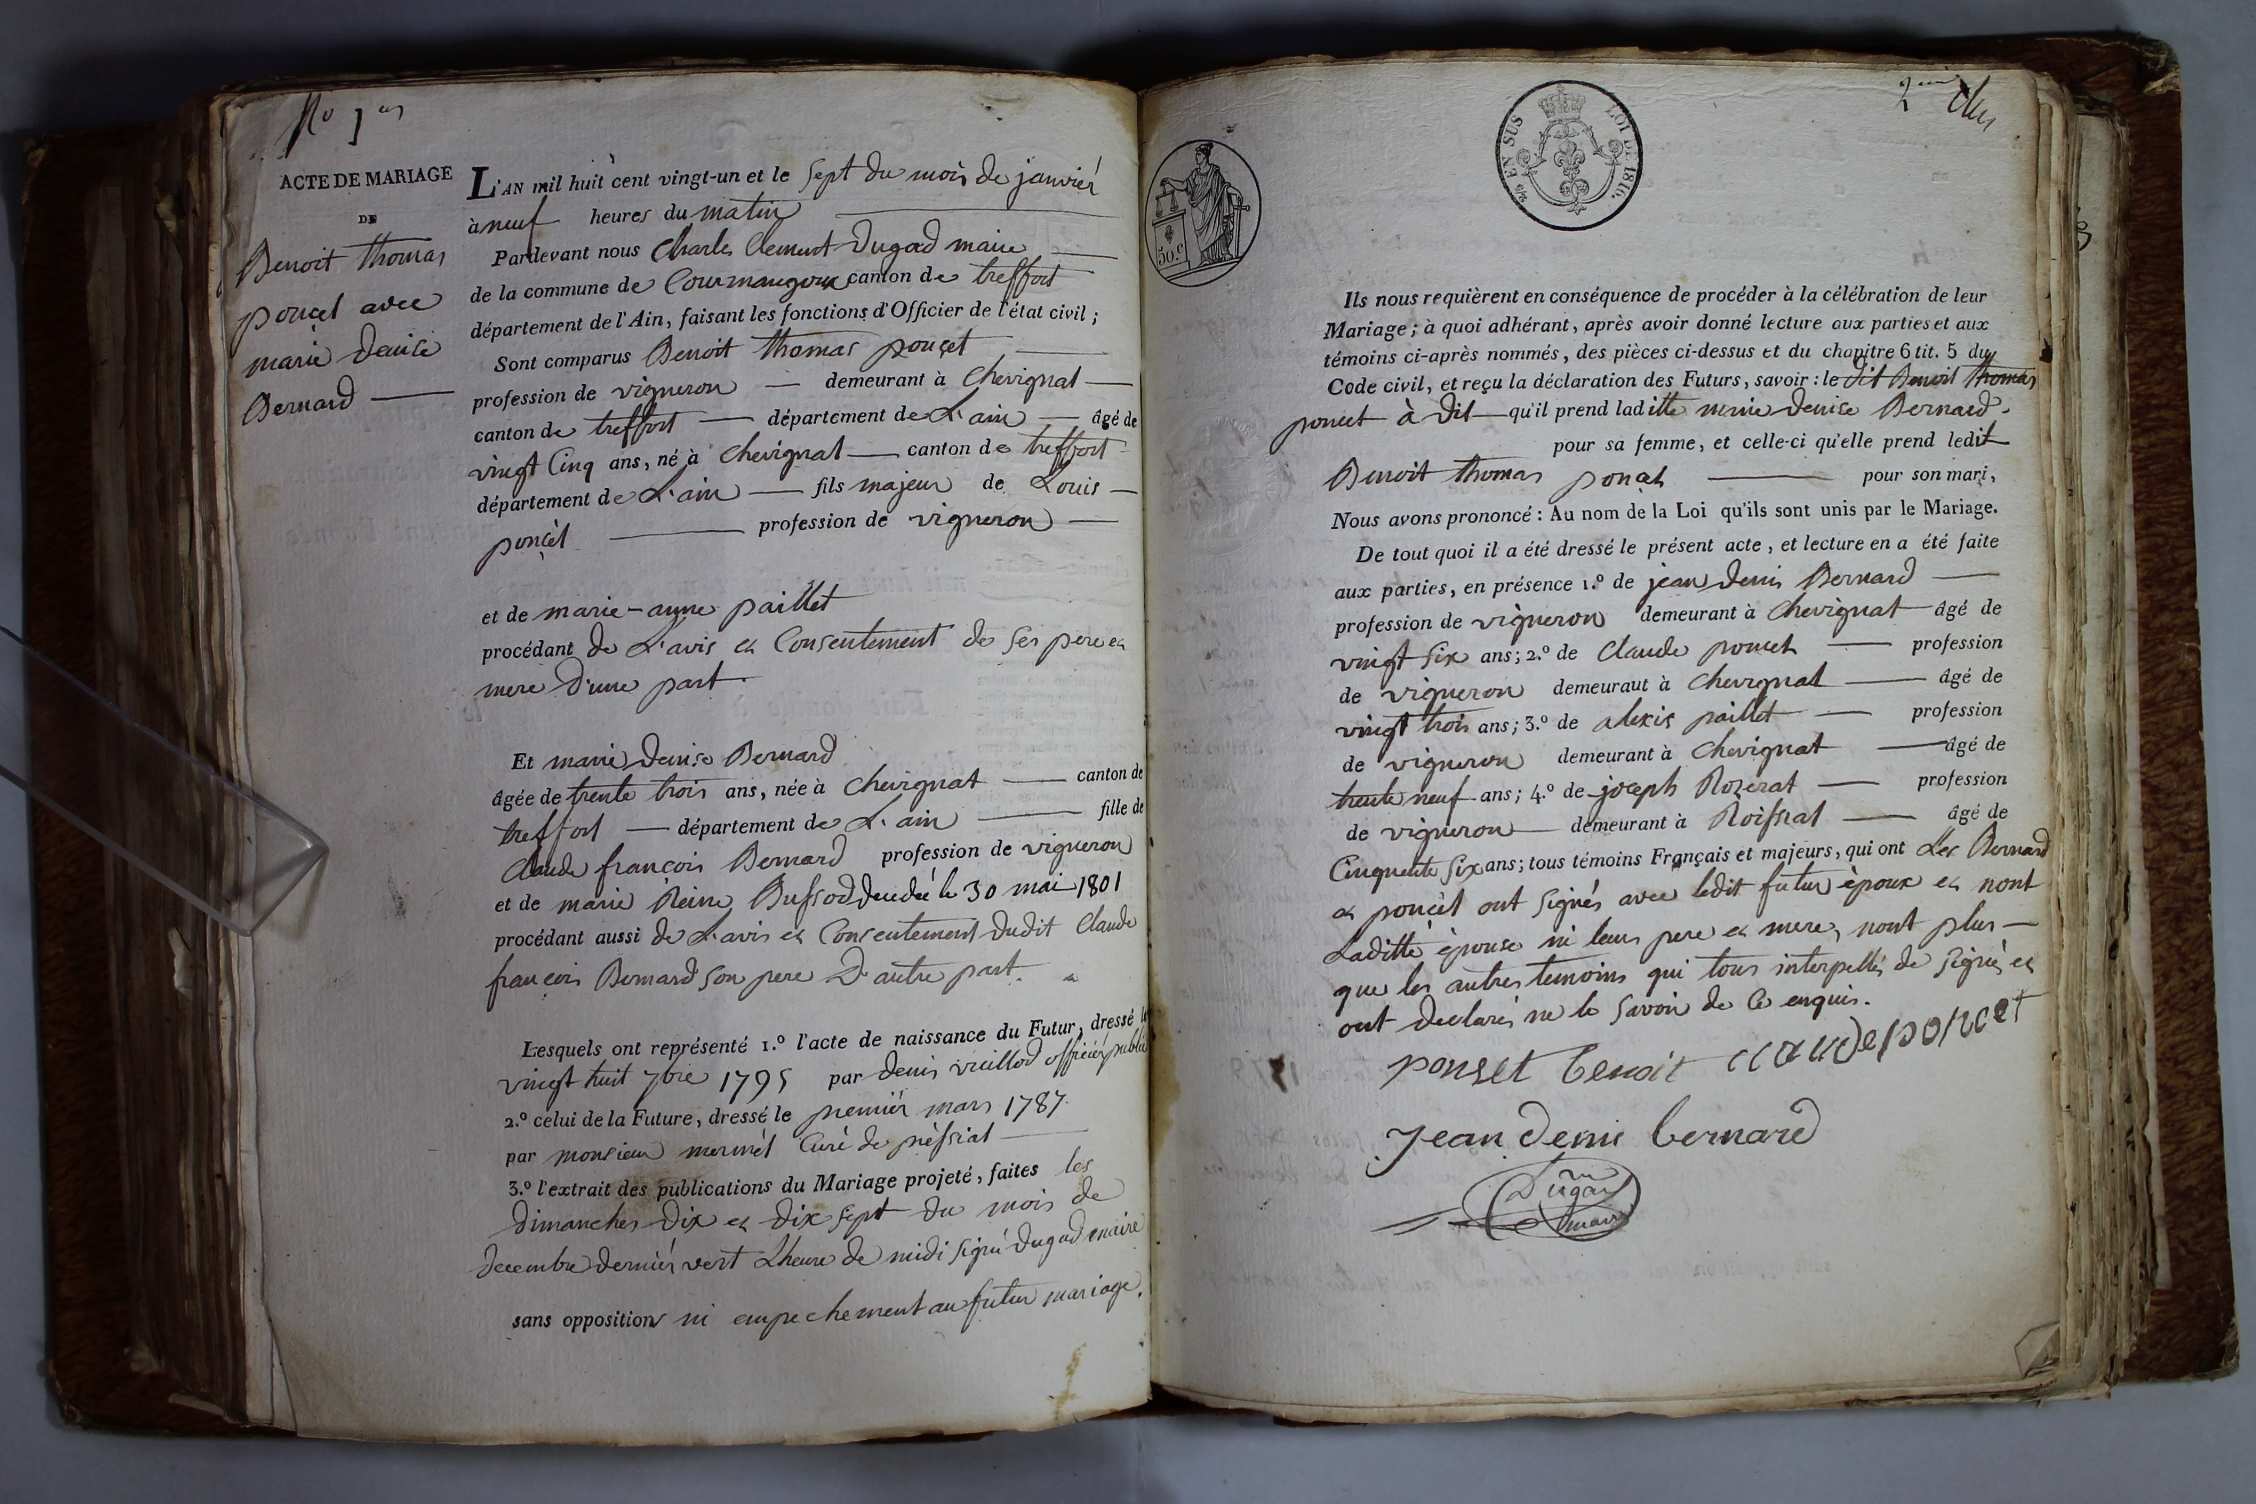 No 1er
ACTE DE MARIAGE
DE
Benoit thomas
poncet avec
marie denise
Bernard
L'AN mil huit cent vingt-un et le sept du mois de janviér
à neuf heures du matin
Pardevant nous Charles Clement Dugad maire
de la commune de Courmangoux canton de treffort
département de l'Ain, faisant les fonctions d'Officier de l'état civil ;
Sont comparus Benoit thomas ponçet
profession de vigneron demeurant à Chevignat
canton de treffort département de L'ain âgé de
vingt Cinq ans, né à Chevignat canton de treffort
département de L'ain fils majeur de Louis
ponçet profession de vigneron
et de marie-anne paillet
procédant de L'avis et Consentement de ses pere et
mere D'une part.
Et marie Denise Bernard
âgée de trente trois ans, née à Chevignat canton de
treffort département de L'ain fille de
Claude françois Bernard profession de vigneron
et de marie Reine Buffod decedée le 30 mai 1801
procédant aussi de L'avis et Consentement dudit Claude
françois Bernard son pere D'autre part.
Lesquels ont représenté 1.º l'acte de naissance du Futur, dressé le
vingt huit 7bre 1795 par denis vieillod officiér public
2.º celui de la Future, dressé le premiér mars 1787.
par monsieur mermét Curé de préssiat
3.º l'extrait des publications du Mariage projeté, faites les
dimanches dix et dix sept du mois de
decembre derniér vert Lheure de midi signé dugad maire
sans opposition ni empechement au futur mariage.
2me
50.c
EN SUS
LOI DE 1816.
Ils nous requièrent en conséquence de procéder à la célébration de leur
Mariage ; à quoi adhérant, après avoir donné lecture aux parties et aux
témoins ci-après nommés, des pièces ci-dessus et du chapitre 6 tit. 5 du
Code civil, et reçu la déclaration des Futurs, savoir : le dit Benoit thomas
poncet à dit qu'il prend laditte marie denise Bernard.
pour sa femme, et celle-ci qu'elle prend ledit
Benoit thomas ponçet pour son mari,
Nous avons prononcé : Au nom de la Loi qu'ils sont unis par le Mariage.
De tout quoi il a été dressé le présent acte, et lecture en a été faite
aux parties, en présence 1.º de jean denis Bernard
profession de vigneron demeurant à Chevignat âgé de
vingt six ans ; 2.º de Claude poncet profession
de vigneron demeuraut à Chevignat âgé de
vingt trois ans ; 3.º de alexis paillet profession
de vigneron demeurant à Chevignat âgé de
trente neuf ans ; 4.º de joseph Rozerat profession
de vigneron demeurant à Roissiat âgé de
Cinquente six ans ; tous témoins Français et majeurs, qui ont Les Bernard
et ponçet ont signés avec ledit futur époux et nont
Laditte épouse ni leurs pere et mere, nont plus
que les autres temoins qui tous interpellés de signér et
ont declarés ne le savoir de ce enquis.
ponset benoit claude poncet
jean denis bernard
Dugad
maire